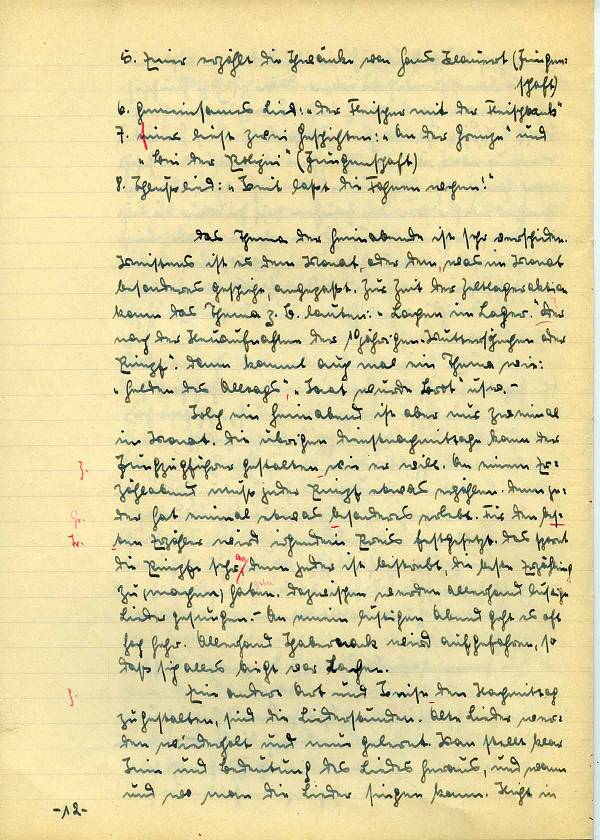 5. Einer erzählt die Schwänke von Hans Clauert (Jungen-
schaft)
6. Gemeinsames Lied: „Der Fleischer mit der Fleischbank"
7. Einer liest zwei Geschichten: „An der Grenze" und
„Bei der Polizei" (Jungenschaft)
8. Schlußlied: „Weit laßt die Fahnen wehen!"
Das Thema der Heimabende ist sehr verschieden.
Meistens ist es dem Monat, oder dem, was im Monat
besonderes geschehe, angepaßt. Zur Zeit der Zeltlageraktion
kann das Thema z. B. lauten: „Lachen im Lager." Oder
nach der Neuaufnahme der 10jährigen: „Muttersöhnchen oder
Pimpf". Dann kommt auch mal ein Thema wie:
„Helden des Alltags", „Saat wurde Brot" usw. -
Solch ein Heimabend ist aber nur zweimal
im Monat. Die übrigen Dienstnachmittage kann der
Z.
Jungzugführer gestalten wie er will. An einem Er-
zählabend muß jeder Pimpf etwas erzählen. Denn je-
Gr.
der hat einmal etwas besonderes erlebt. Für den bes-
Tr.
ten Erzähler wird irgendein Preis festgesetzt. Das spornt
die Pimpfe sehr an, denn jeder ist bestrebt, die beste Erzählung
zu (machen) haben. Dazwischen werden allerhand lustige
Lieder gesungen. - An einem lustigen Abend geht es oft
hoch her. Allerhand Schabernack wird aufgefahren, so
daß sich alles biegt vor Lachen.
Z.
Eine andere Art und Weise den Nachmittag
zu gestalten, sind die Liederstunden. Alte Lieder wer-
den wiederholt und neue gelernt. Man stellt klar
Sinn und Bedeutung des Liedes heraus, und wann
und wo man die Lieder singen kann. Nicht in
-12-